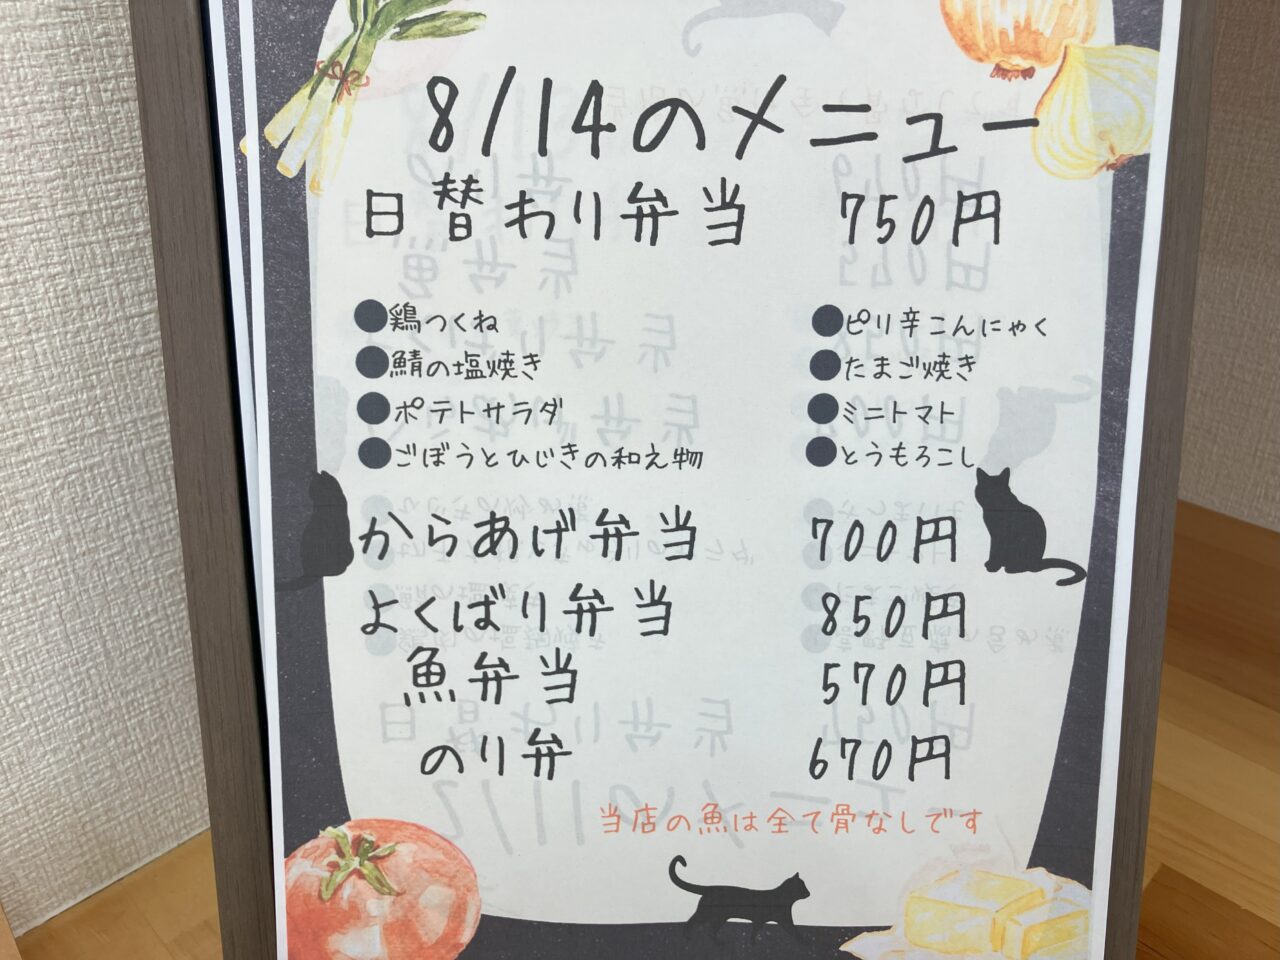 8/14のメニュー
日替わり弁当 750円
●鶏つくね ●ピリ辛こんにゃく
●鯖の塩焼き ●たまご焼き
●ポテトサラダ ●ミニトマト
●ごぼうとひじきの和え物 ●とうもろこし
からあげ弁当 700円
よくばり弁当 850円
魚弁当 570円
のり弁 670円
当店の魚は全て骨なしです